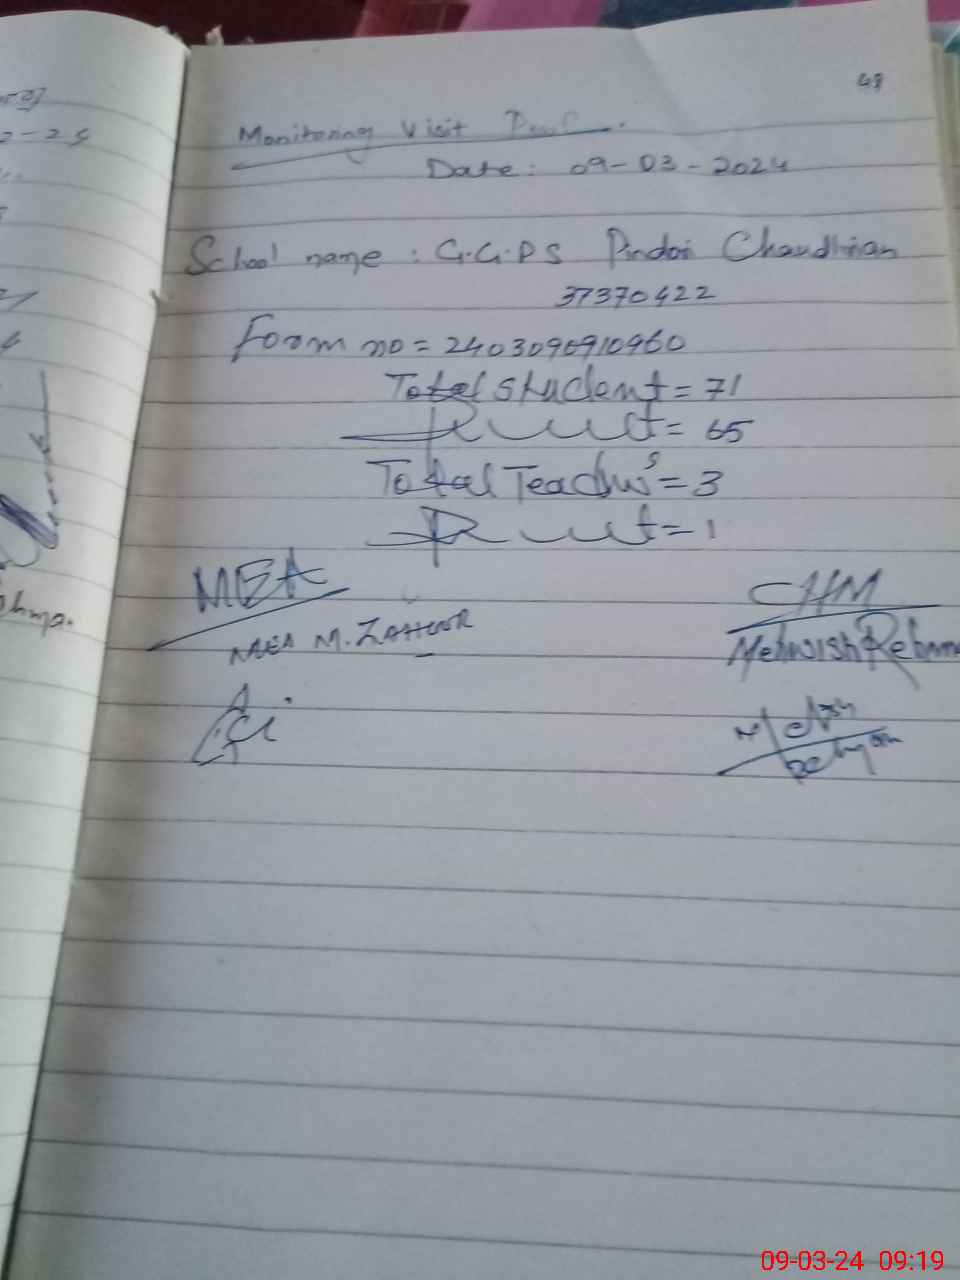 48
Monitoring Visit Proof.
Date: 09-03-2024
School name: G.G.P.S Pindori Chaudhrian
37370422
Form no = 2403090910960
Total student = 71
Present = 65
Total Teachers = 3
Present = 1
MEA
CHM
MEA M. ZAHOOR
Mehwish Rehman
Mehwish
Rehman
09-03-24 09:19